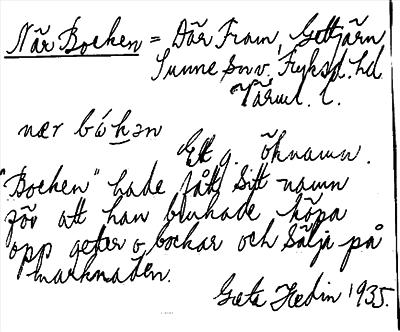 När Bocken = Där Fram, Gettjärn
Sunne sn v. Fryksd. hd
Värml. l.
nær bókən
Ett g. öknamn.
"Bocken" hade fått sitt namn
för att han brukade köpa
opp getter o. bockar och sälja på
marknaden.
Greta Hedin 1935.